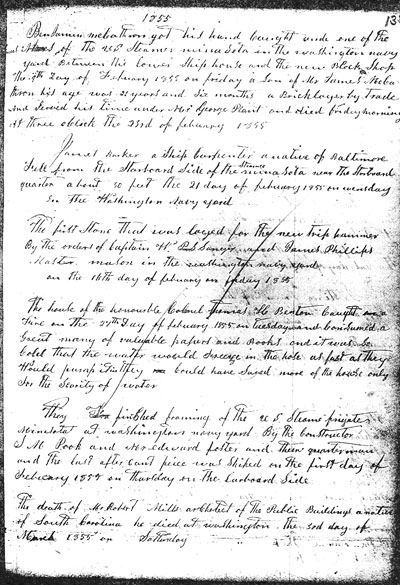 1855
13
Benjamin mcbathron got his hand Caught unde one of the
of the U.S. Steamer minasota in the washington navy
yard Between the lower Ship house and the new Block Shop
the 9th Day of February 1855 on friday a Son of Mr James
his age was 21 years and Six months a Bricklayer by Trade
And Served his time under Mr George Plant and died friday morning
At three oclock the 23rd of february 1855
James Baker a Ship Carpenter a native of Baltimore
Fell from the Starboard Side of the Steamer minasota near the Starboard
quarter about 30 feet the 21 day of february 1855 on wensday
In the Washington Navy yard
The first Stone that was layed for the new trip hammer
By the orders of Captain and James Phillips
Master mason in the washington navy yard
on the 16th day of february on friday 1855
The house of the honourable Colonel Thomas H Benton Caught on a
Fire on the 27th Day of february 1855 on tuesday and Consumed a
Great many of valuable papers and Books and it was So
Cold that the water would freeze in the hose as fast as they
Would pump They Could have Saved more of the house only
for the Scarity of water
They finished framing of the U S Steame frigate
Minesotat at washington navy yard By the Constructor
S M Pook and Mr edward foster and there quarterman
and the last after Cant peice was Shiped on the first day of
February 1855 on thursday on the Larboard Side
The death of Mr Robert Mills architect of the Public Buildings a native
of South Carolina he died at washington the 3rd day of
March 1855 on Saturday